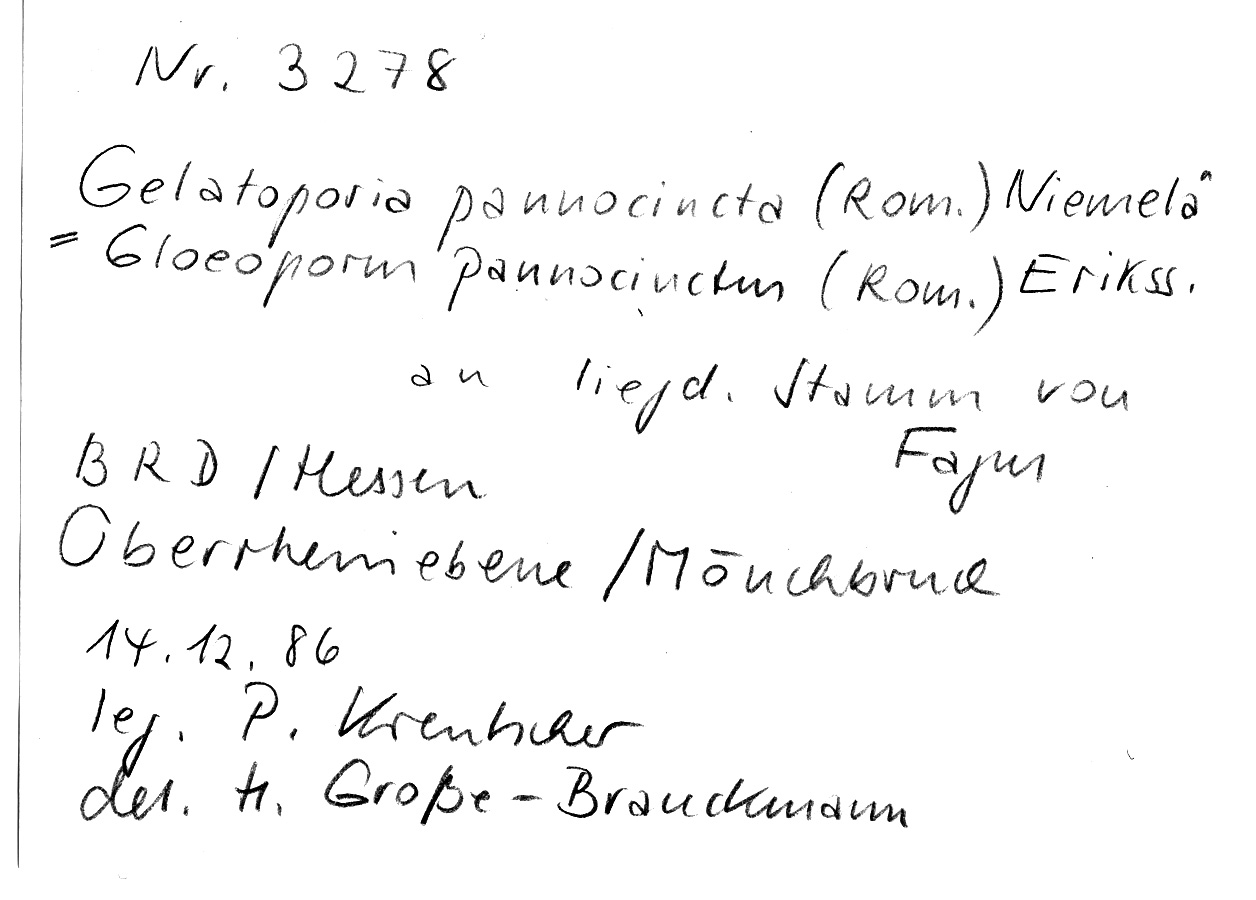 Nr. 3278
Gelatoporia pannocincta (Rom.) Niemelä
= Gloeoporus pannocinctus (Rom.) Erikss.
an liegd. Stamm von
Fagus
BRD / Hessen
Oberrheinebene / Mönchbruch
14.12.86
leg. P.
det. H. Große-Brauckmann